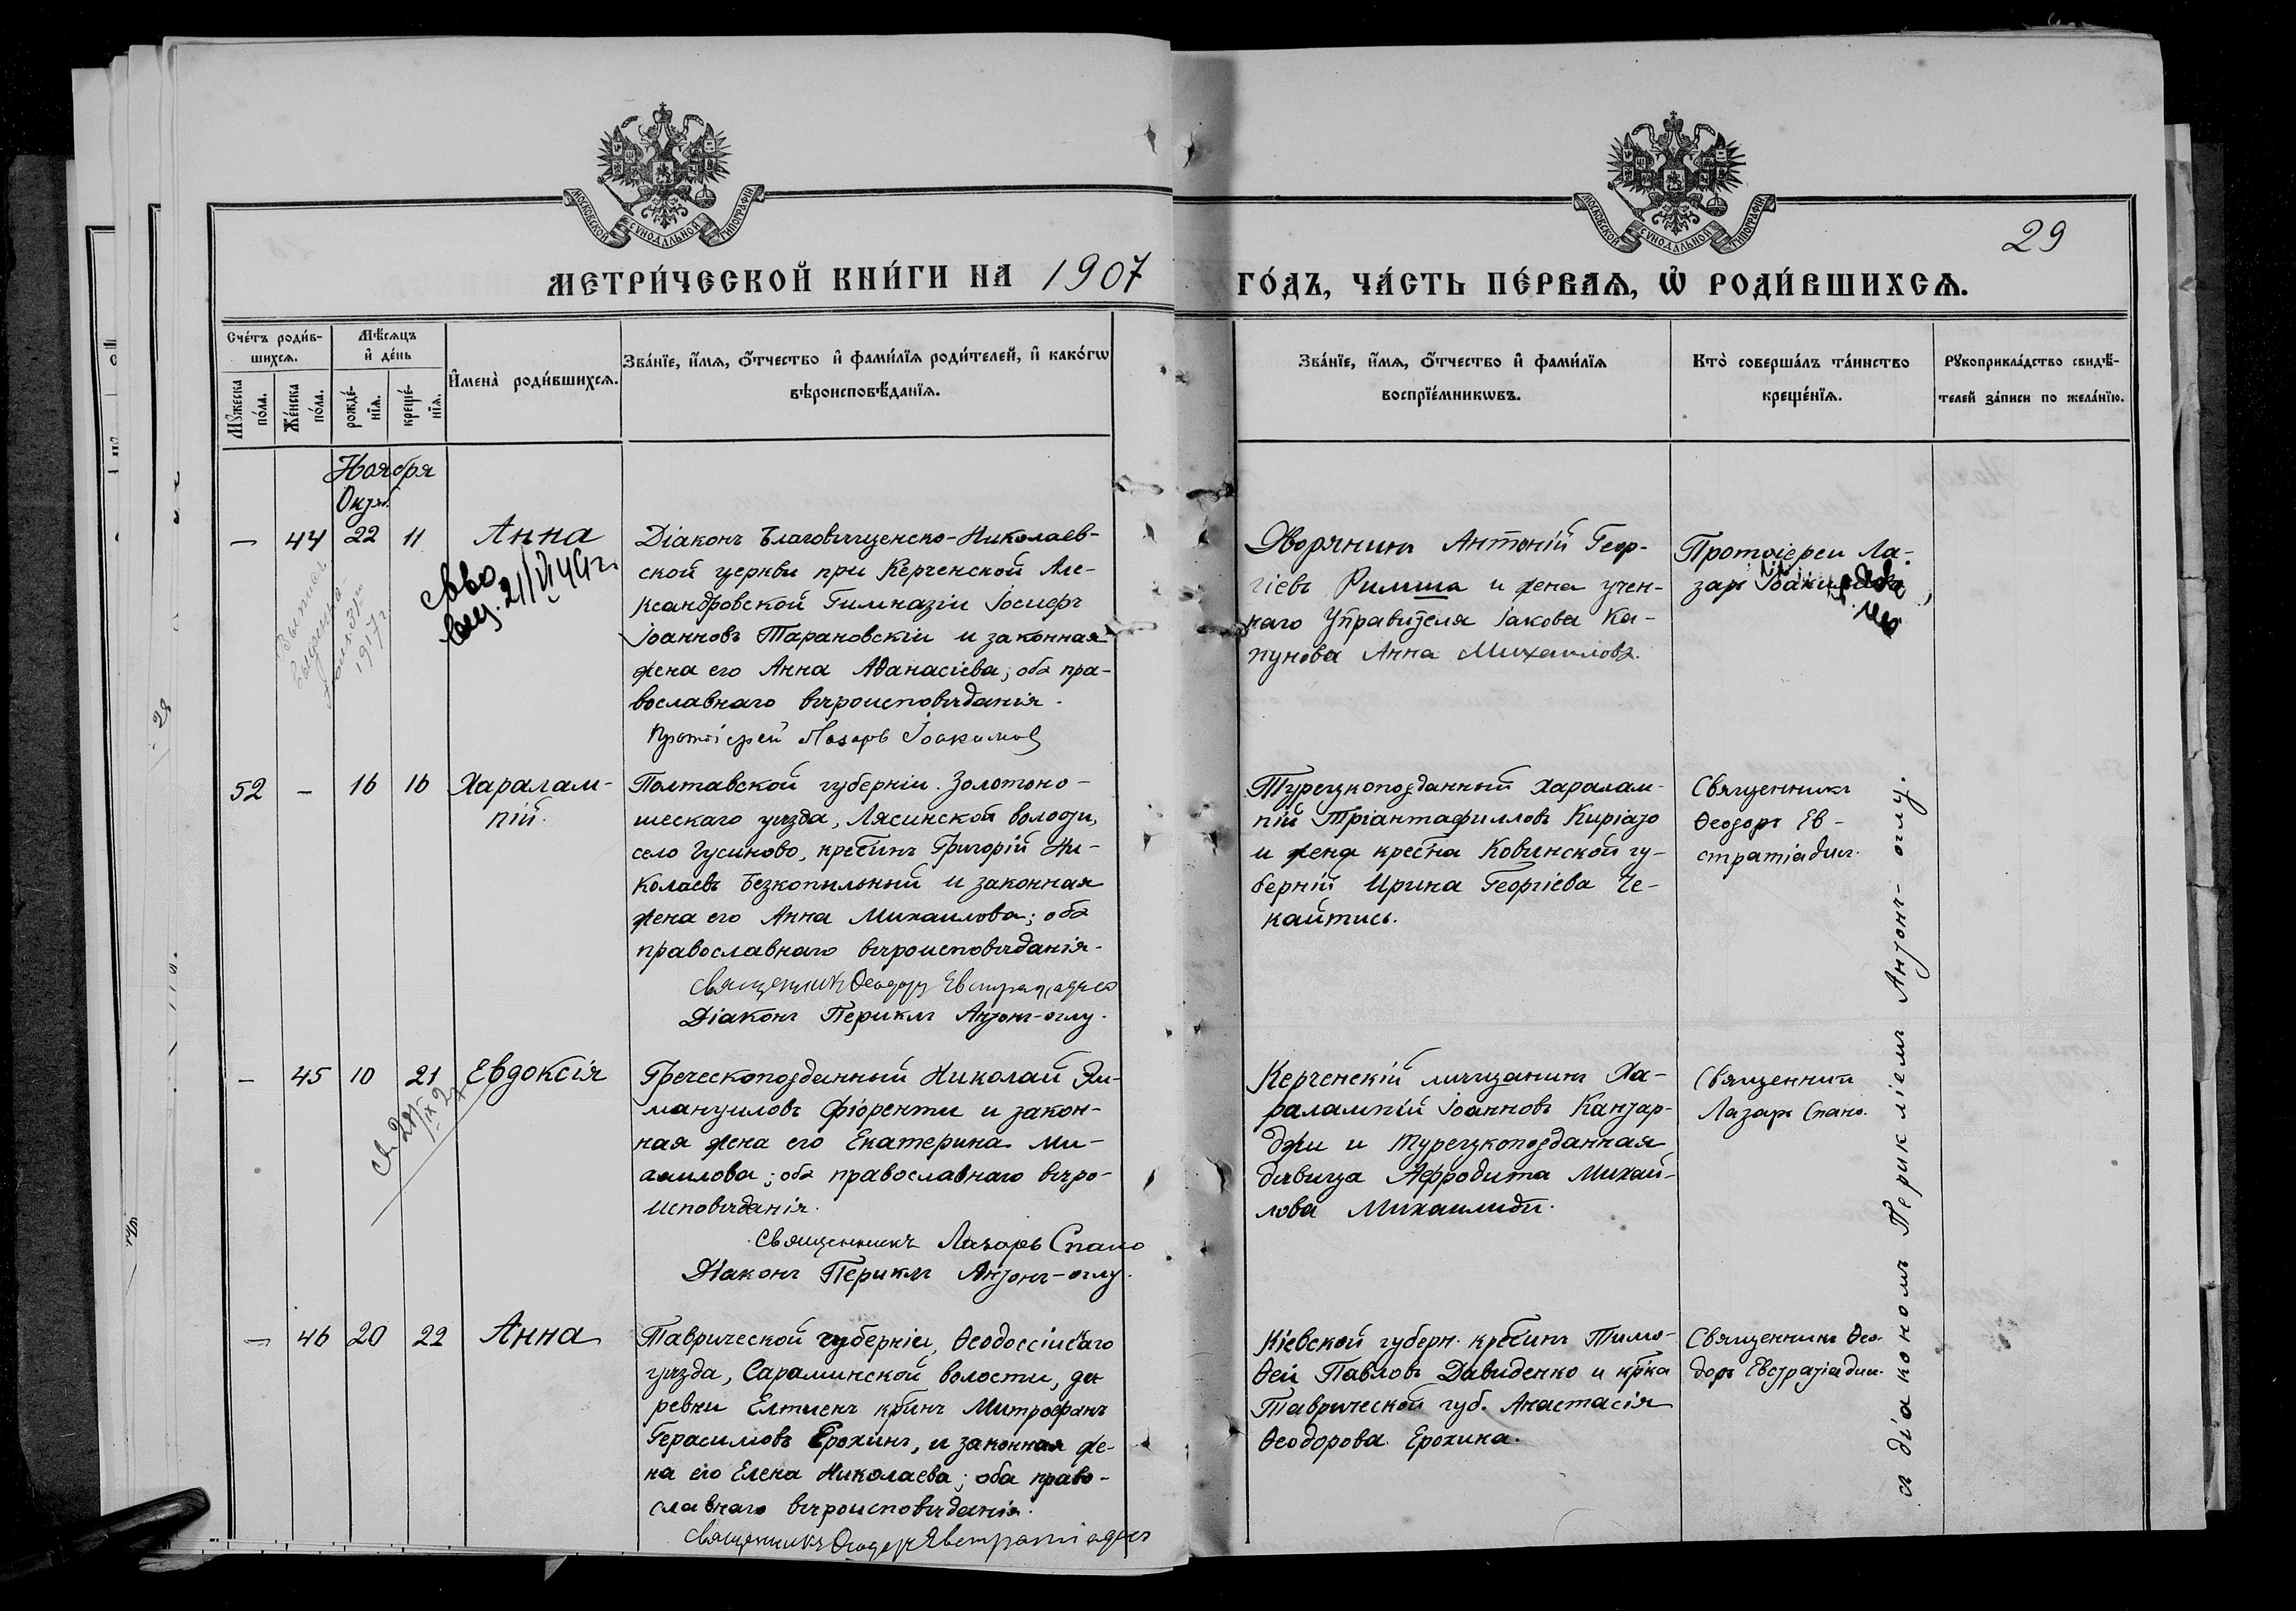 МОСКОВСКОЙ СУНОДАЛЬНОЙ ТИПОГРАФІИ
МОСКОВСКОЙ СУНОДАЛЬНОЙ ТИПОГРАФІИ
29
МЕТРИ́ЧЕСКОЙ КНИ́ГИ НА 1907 ГО́ДЪ, ЧА́СТЬ ПЕ́РВАѦ, Ѡ҆ РОДИ́ВШИХСѦ.
Сче́тъ роди́в-
шихсѧ.
Мꙋжеска по́ла.
Же́нска по́ла.
Мѣ́сѧцъ
и҆ де́нь
рожде́-
нїѧ.
креще́-
нїѧ.
И҆мена̀ роди́вшихсѧ.
Зва́нїе, и҆́мѧ, ѻ҆́тчество и҆ фами́лїѧ роди́телей, и҆ како́гѡ
вѣроисповѣ́данїѧ.
Зва́нїе, и҆́мѧ, ѻ҆́тчество и҆ фами́лїѧ
воспрїе́мникѡвъ.
Кто̀ соверша́лъ та́инство
креще́нїѧ.
Рꙋкоприкла́дство свидѣ́-
телей за́писи по жела́нїю.
Ноября
Октяб.
— 44 22 11 Анна
Діаконъ Благовѣщенско-Николаев-
ской церкви при Керченской Але-
ксандровской Гимназіи Іосифъ
Іоанновъ Тарановскій и законная
жена его Анна Аѳанасіева; оба пра-
вославнаго вѣроисповѣданія.
Протоіерей Лазарь Іоакимов
Дворянинъ Антоній Геор-
гіевъ Римша и жена учен-
наго Управителя Іакова Ка-
пунова Анна Михаилова.
Протоіереи Ла-
зарь
1917 г
21/VI 44 г.
52 — 16 16 Харалам-
пій.
Полтавской губерніи. Золотоно-
шескаго уѣзда, Лясинской волости,
село Гусиново, крестинъ Григорій Ни-
колаевъ Безкопыльный и законная
жена его Анна Михаилова; оба
православнаго вѣроисповѣданія.
Священникъ Ѳеодоръ Евстратіадисъ
Діаконъ Периклъ Антонъ-оглу.
Турецкоподданный Харалам-
пій Тріантафилловъ Киріазо
и жена крестна Ковенской гу-
берній Ирина Георгіева Че-
кайтись.
Священникъ
Ѳеодоръ Ев-
стратіадисъ.
— 45 10 21 Евдоксія
Греческоподданный Николай Эм-
мануиловъ Фіоренти и закон-
ная жена его Екатерина Ми-
аилова; оба православнаго вѣро-
исповѣданія.
Священникъ Лазарь Спано
Діаконъ Периклъ Антонъ-оглу.
Керченскій мѣщанинъ Ха-
ралампій Іоанновъ Канзар-
джи и Турецкоподданная
дѣвица Афродита Михаи-
лова Михаилиди.
Священник
Лазарь Спано.
— 46 20 22 Анна
Таврической губерніи, Ѳеодоссійскаго
уѣзда, Сараминской волости, де
ревни Елтиенъ крнинъ Митрофанъ
Герасимовъ Ерохинъ, и законная же-
на его Елена Николаева; оба право-
славнаго вѣроисповѣданія.
Священникъ Ѳеодоръ Евстратіадисъ
Кіевской губерн. крестинъ Тимо-
ѳей Павловъ Давиденко и крка
Таврической губ. Анастасія
Ѳеодорова Ерохина.
Священникъ Ѳео-
доръ Евстратіадис.
съ діакономъ Перикліемъ Антонъ-оглу.